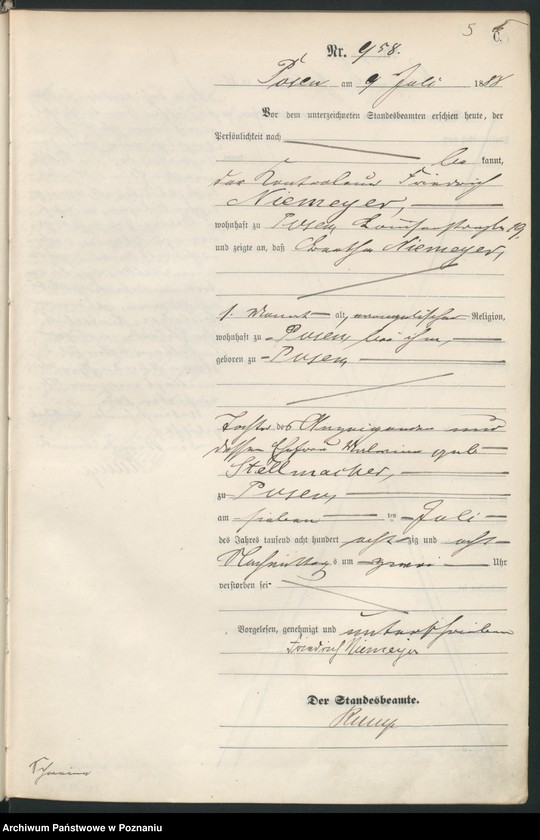 5
6.
Nr. 958.
Posen am 9 Juli 1888
Vor dem unterzeichneten Standesbeamten erschien heute, der
Persönlichkeit nach
be kannt,
der Kontroleur Friedrich
Niemeyer,
wohnhaft zu Posen, 19,
und zeigte an, daß Bertha Niemeyer,
1 Monat alt, evangelischer Religion,
wohnhaft zu Posen bei ihm,
geboren zu Posen,
Tochter des Anzeigenden und
dessen Ehefrau geb
Stellmacher,
zu Posen,
am sieben ten Juli
des Jahres tausend acht hundert acht zig und acht
Nachmittags um zwei Uhr
verstorben sei
Vorgelesen, genehmigt und unterschrieben
Friedrich Niemeyer
Der Standesbeamte.
Archiwum Państwowe w Poznaniu